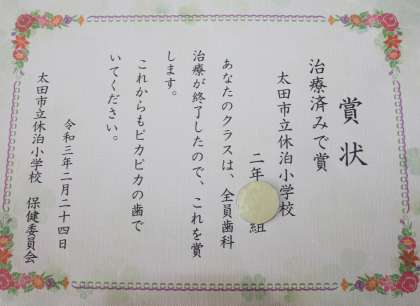 賞状
治療済みで賞
太田市立休泊小学校
二年 組
あなたのクラスは、全員歯科
治療が終了したので、これを賞
します。
これからもピカピカの歯で
いてください。
令和三年二月二十四日
太田市立休泊小学校 保健委員会